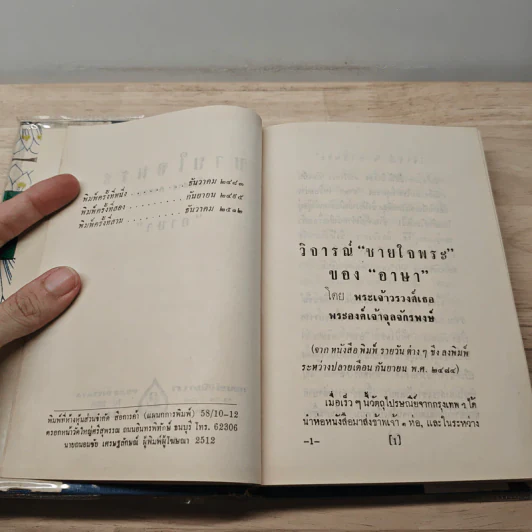 พิมพ์ครั้งที่หนึ่ง . . . . . . . . . ธันวาคม ๒๔๘๓
พิมพ์ครั้งที่สอง . . . . . . . . . กันยายน ๒๔๙๕
พิมพ์ครั้งที่สาม . . . . . . . . . ธันวาคม ๒๕๑๒
พิมพ์ที่ห้างหุ้นส่วนจำกัด ชัยการค้า (แผนกการพิมพ์) 58/10-12
ตรอกหน้าวัดใหญ่ศรีสุพรรณ ถนนอินทรพิทักษ์ ธนบุรี โทร. 62306
นายถนอมชัย เศรษฐลักษณ์ ผู้พิมพ์ผู้โฆษณา 2512
วิจารณ์ "ชายใจพระ"
ของ "อาษา"
โดย พระเจ้าวรวงศ์เธอ
พระองค์เจ้าจุลจักรพงษ์
(จาก หนังสือ พิมพ์ รายวัน ต่าง ๆ ซึ่ง ลงพิมพ์
ระหว่างปลายเดือน กันยายน พ.ศ. ๒๔๘๔)
เมื่อเร็ว ๆ นี้วัตถุไปรษณีย์จากกรุงเทพ ฯ ได้
นำห่อหนังสือมาส่งข้าพเจ้า ๑ ห่อ, และในระหว่าง
–1– [1]